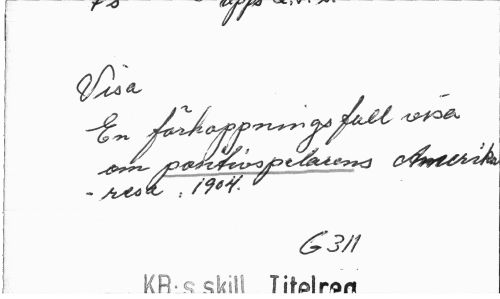 Visa
En förhoppningsfull visa
om positivspelarens Amerika
-resa, 1904.
G 311
KB:s skill. Titelreg